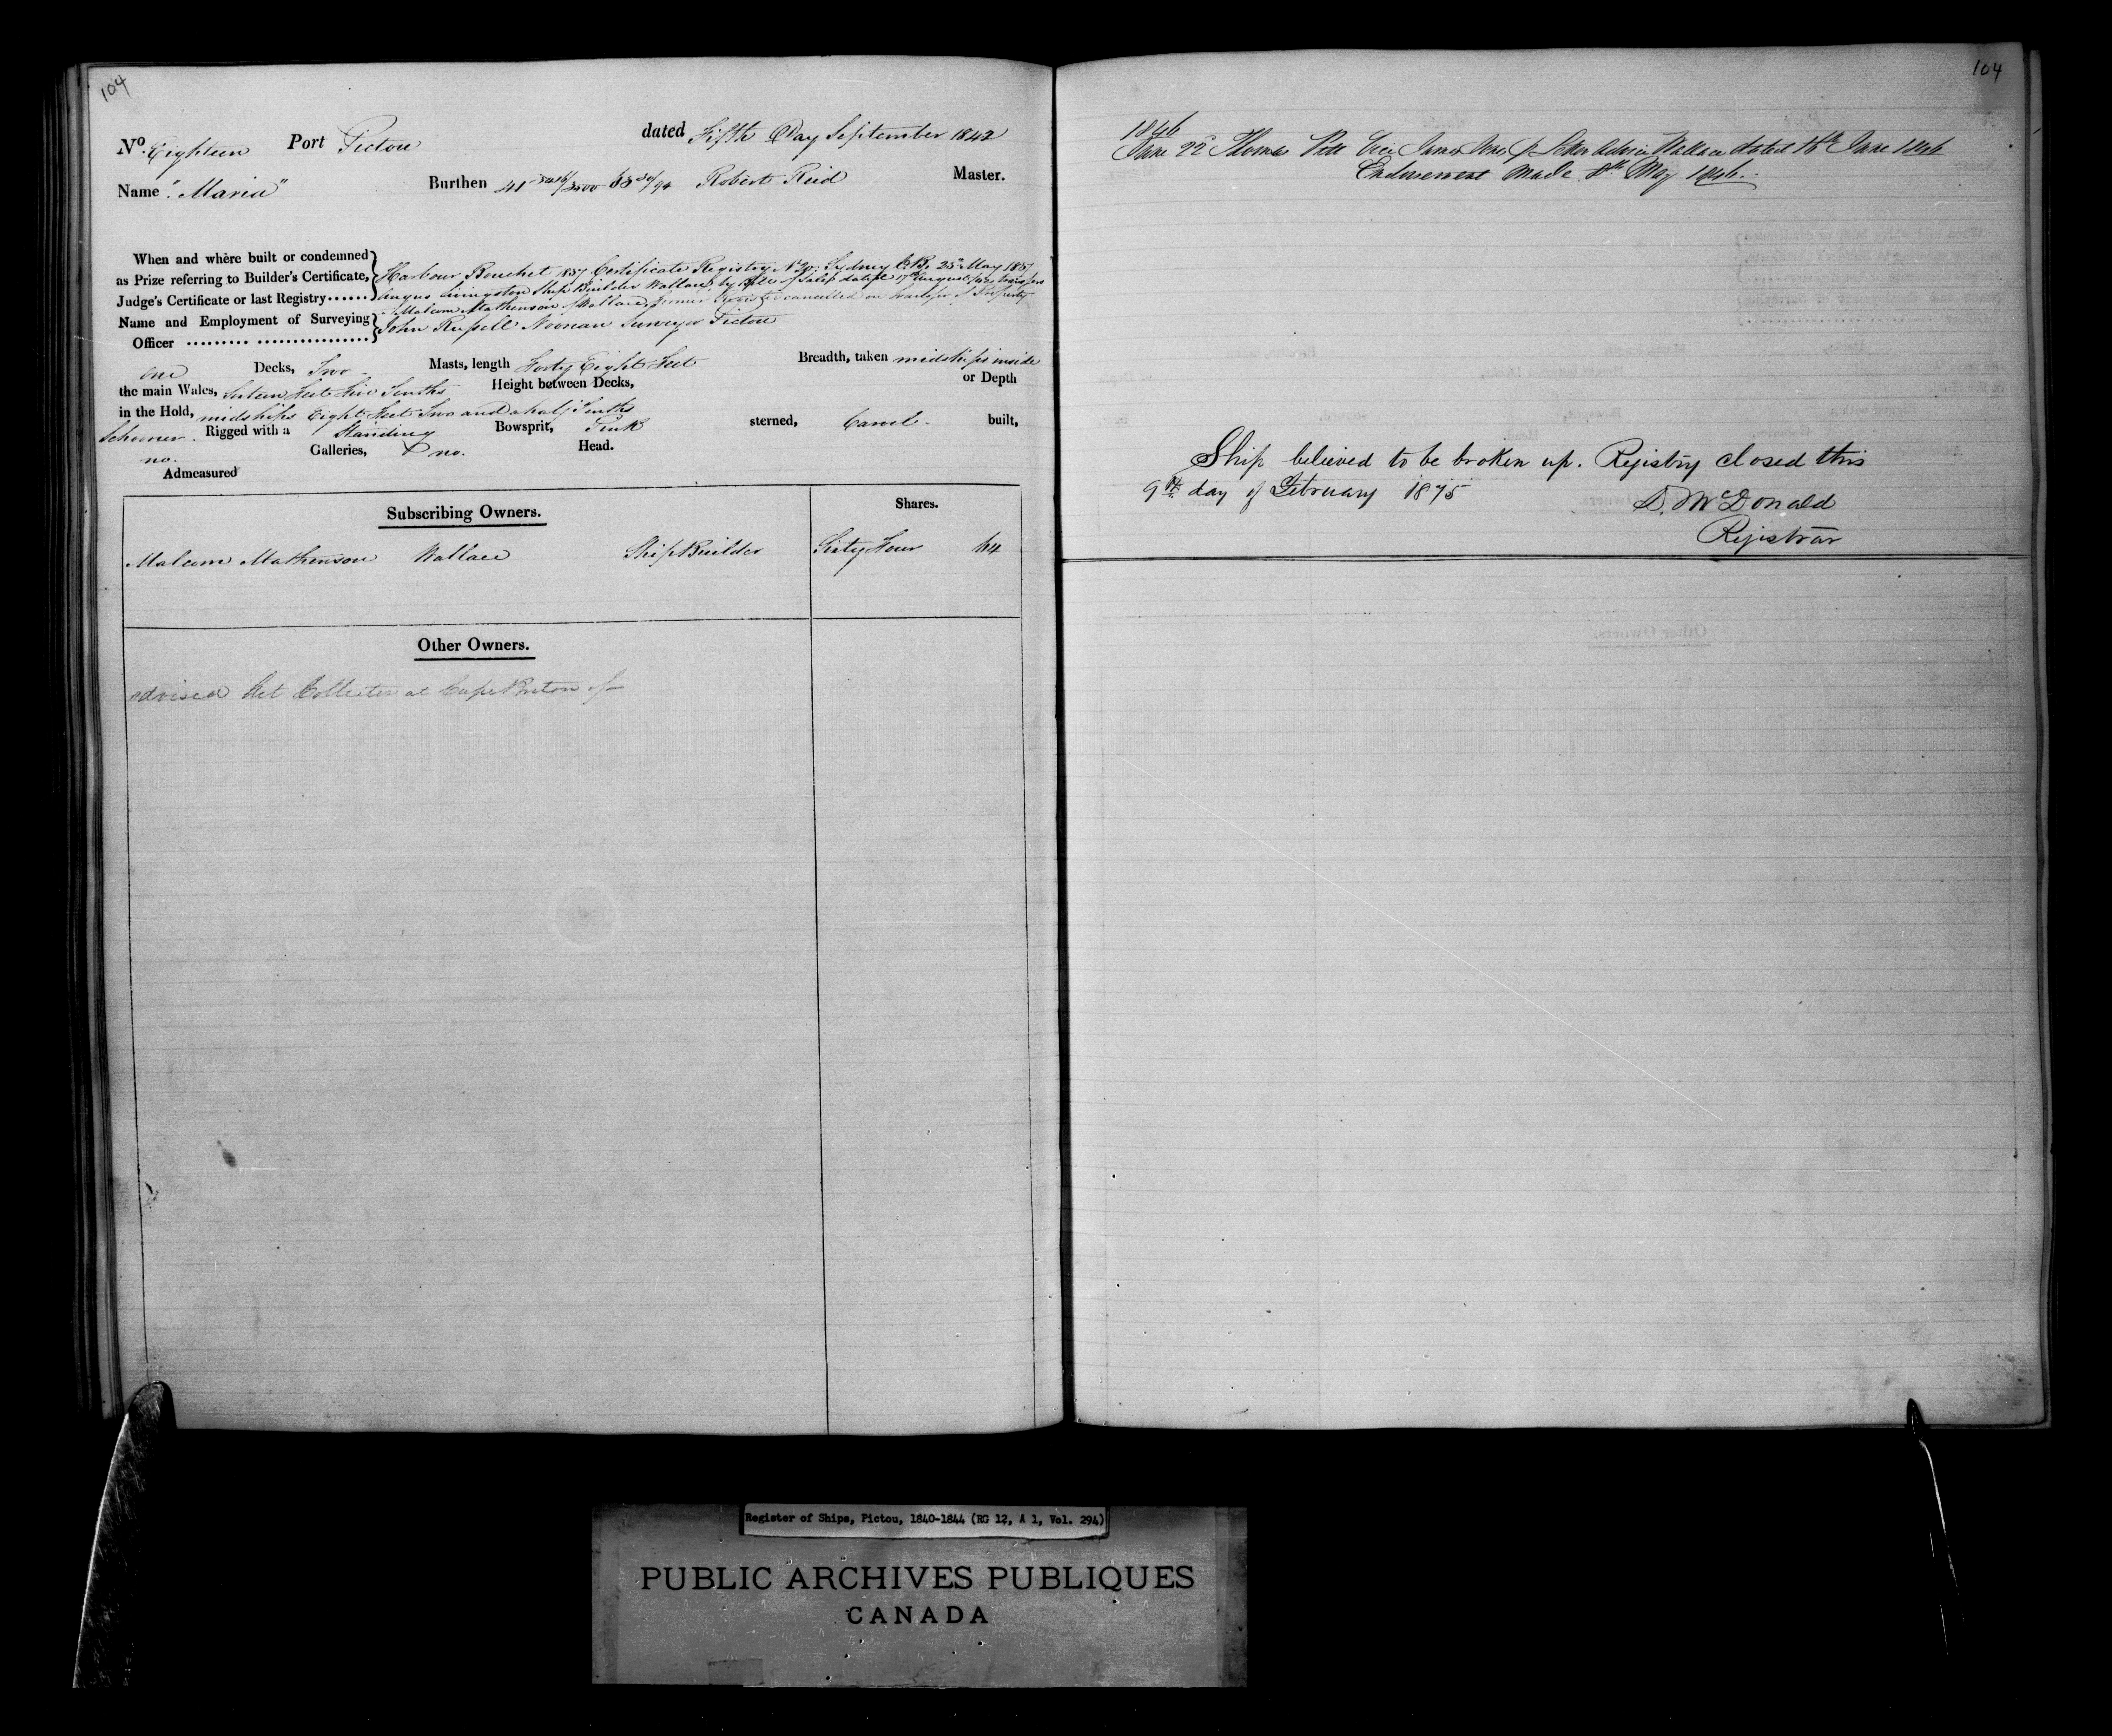 104
No. Eighteen Port Pictou dated Fifth Day September 1842
Name "Maria" Burthen 41 /3500 Robert Reid Master.
When and where built or condemned
as Prize referring to Builder's Certificate,
Judge's Certificate or last Registry......
Harbour Bouchet 1837 Certificate Registry No 20, Sydney C.B. 25th May 1837
Angus Livingston Ship Builder Wallace, by of Sale dated 17th August transfers
Malcom Mathewson of Wallace, former Register cancelled on transfer of Property
Name and Employment of Surveying
Officer ......... .................
John Russell Noonan Surveyor Pictou
one Decks, Two Masts, length Forty Eight Feet Breadth, taken midships inside
the main Wales, Feet Tenths Height between Decks, or Depth
in the Hold, midships Eight Feet Two and a half Tenths
Schooner. Rigged with a Standing Bowsprit, Pink sterned, Carvel built,
no. Galleries, & no. Head.
Admeasured
Subscribing Owners. Shares.
Malcom Mathewson Wallace Ship Builder Sixty Four 64
Other Owners.
advised Act Collector at Cape Breton of
104
1846
June 22 Thomas vice James Letter Wallace dated 16th June 1846
Endorsement made 8th May 1846.
Ship believed to be broken up. Registry closed this
9th day of February 1875
D. McDonald
Registrar
Register of Ships, Pictou, 1840-1844 (RG 12, A 1, Vol. 294)
PUBLIC ARCHIVES PUBLIQUES
CANADA